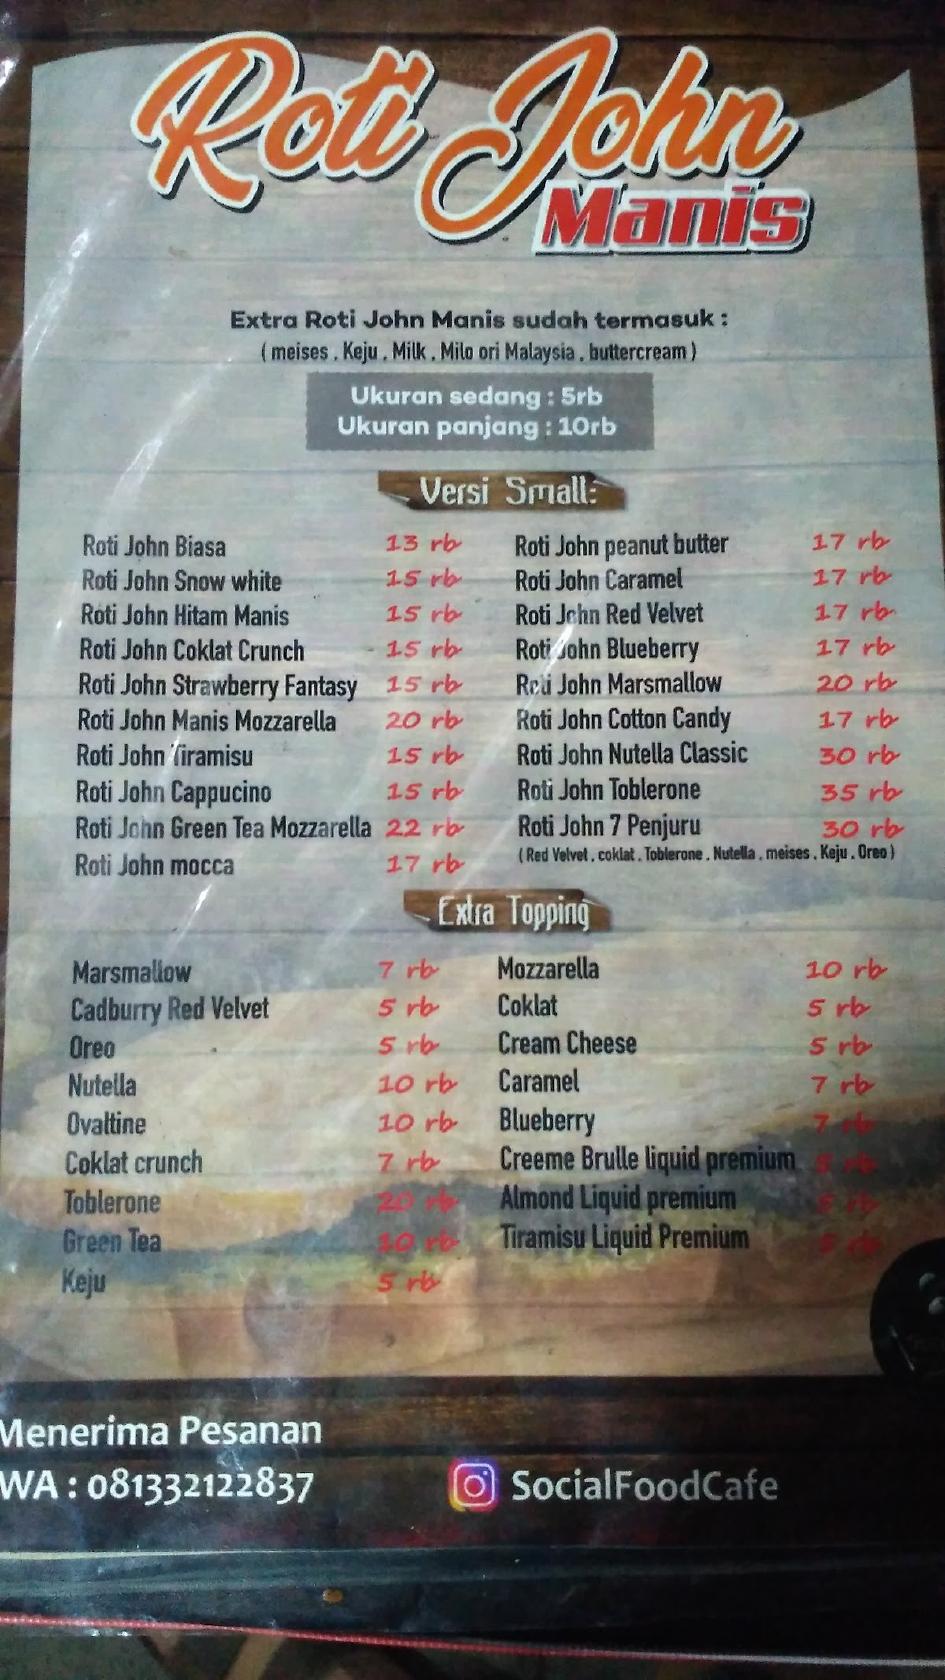 Roti John
Manis
Extra Roti John Manis sudah termasuk :
( meises . Keju . Milk . Milo ori Malaysia . buttercream )
Ukuran sedang : 5rb
Ukuran panjang : 10rb
Versi Small:
Roti John Biasa 13 rb
Roti John Snow white 15 rb
Roti John Hitam Manis 15 rb
Roti John Coklat Crunch 15 rb
Roti John Strawberry Fantasy 15 rb
Roti John Manis Mozzarella 20 rb
Roti John Tiramisu 15 rb
Roti John Cappucino 15 rb
Roti John Green Tea Mozzarella 22 rb
Roti John mocca 17 rb
Roti John peanut butter 17 rb
Roti John Caramel 17 rb
Roti John Red Velvet 17 rb
Roti John Blueberry 17 rb
Roti John Marsmallow 20 rb
Roti John Cotton Candy 17 rb
Roti John Nutella Classic 30 rb
Roti John Toblerone 35 rb
Roti John 7 Penjuru 30 rb
( Red Velvet . coklat . Toblerone . Nutella . meises . Keju . Oreo )
Extra Topping
Marsmallow 7 rb
Cadburry Red Velvet 5 rb
Oreo 5 rb
Nutella 10 rb
Ovaltine 10 rb
Coklat crunch 7 rb
Toblerone 20 rb
Green Tea 10 rb
Keju 5 rb
Mozzarella 10 rb
Coklat 5 rb
Cream Cheese 5 rb
Caramel 7 rb
Blueberry 7 rb
Creeme Brulle liquid premium 5 rb
Almond Liquid premium rb
Tiramisu Liquid Premium rb
Menerima Pesanan
WA : 081332122837
SocialFoodCafe